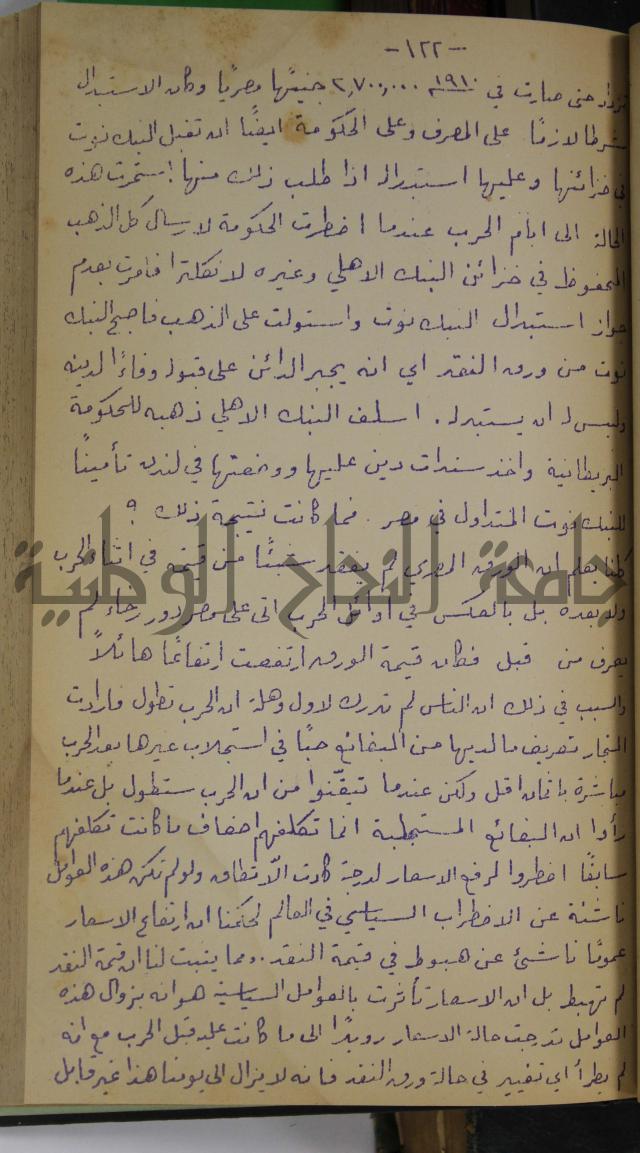 -١٢٢-
تزداد حتى صارت في ١٩١٠ ٢٬٧٠٠٬٠٠٠ جنيها مصريا وكان الاستبدال
شرطا لازما على المصرف وعلى الحكومة ايضًا ان تقبل البنك نوت
في خزائنها وعليها استبداله اذا طلب ذلك منها. استمرت هذه
الحالة الى ايام الحرب عندما اضطرت الحكومة لارسال كل الذهب
المحفوظ في خزائن البنك الاهلي وغيره لانكلترا فامرت بعدم
جواز استبدال البنك نوت واستولت على الذهب فاصبح البنك
نوت من ورق النقد اي انه يجبر الدائن على قبوله وفاءً لدينه
وليس له ان يستبدله. اسلف البنك الاهلي ذهبه للحكومة
البريطانية واخذ سندات دين عليها ووضعتها في لندن تأمينًا
للبنك نوت المتداول في مصر. فما كانت نتيجة ذلك ؟
كلنا يعلم ان الورق المصري لم يفقد شيئًا من قيمته في اثناء الحرب
ولا بعده بل بالعكس في اواخر الحرب اتى على مصر دور رخاء لم
يعرف من قبل فكان قيمة الورق ارتفعت ارتفاعًا هائلاً
والسبب في ذلك ان الناس لم تدرك لاول وهلة ان الحرب تطول فارادت
التجار تصريف ما لديها من البضائع حبًا في استجلاب غيرها بعد الحرب
مباشرة باثمان اقل ولكن عندما تيقّنوا من ان الحرب ستطول بل عندما
رأوا ان البضائع المستجلبة انما تكلفهم اضعاف ما كانت تكلفهم
سابقًا اضطروا لرفع الاسعار لدرجة كادت الّا تطاق ولو لم تكن هذه العوامل
ناشئة عن الاضطراب السياسي في العالم لحكمنا ان ارتفاع الاسعار
عمومًا ناشئ عن هبوط في قيمة النقد. ومما يثبت لنا ان قيمة النقد
لم تهبط بل ان الاسعار تأثرت بالعوامل السياسية هو انه بزوال هذه
العوامل تدرجت حالة الاسعار رويدًا الى ما كانت عليه قبل الحرب مع انه
لم يطرأ اي تغيير في حالة ورق النقد فانه لا يزال الى يومنا هذا غير قابل
جامعة النجاح الوطنية